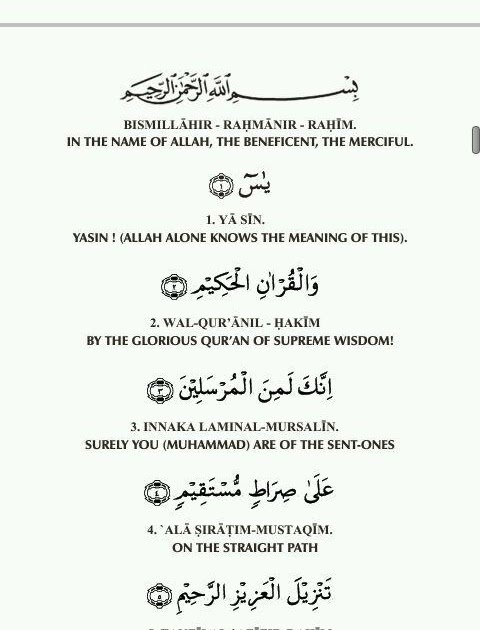 بِسْمِ اللهِ الرَّحْمٰنِ الرَّحِيْمِ
BISMILLĀHIR - RAḤMĀNIR - RAḤĪM.
IN THE NAME OF ALLAH, THE BENEFICENT, THE MERCIFUL.
يٰسٓ ﴿١﴾
1. YĀ SĪN.
YASIN ! (ALLAH ALONE KNOWS THE MEANING OF THIS).
وَالْقُرْاٰنِ الْحَكِيْمِ ﴿٢﴾
2. WAL-QUR’ĀNIL - ḤAKĪM
BY THE GLORIOUS QUR’AN OF SUPREME WISDOM!
اِنَّكَ لَمِنَ الْمُرْسَلِيْنَ ﴿٣﴾
3. INNAKA LAMINAL-MURSALĪN.
SURELY YOU (MUHAMMAD) ARE OF THE SENT-ONES
عَلٰى صِرَاطٍ مُّسْتَقِيْمٍ ﴿٤﴾
4. `ALĀ ṢIRĀṬIM-MUSTAQĪM.
ON THE STRAIGHT PATH
تَنْزِيْلَ الْعَزِيْزِ الرَّحِيْمِ ﴿٥﴾